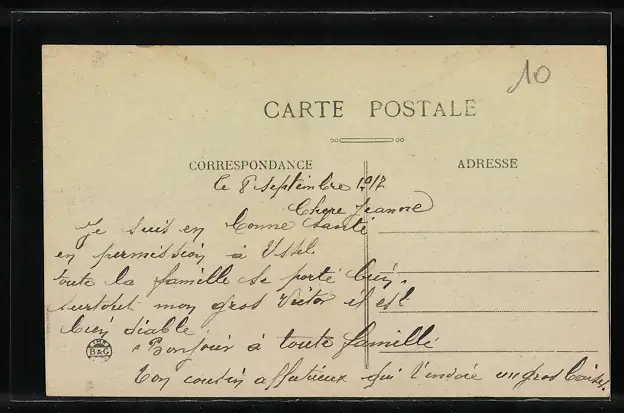 10
CARTE POSTALE
CORRESPONDANCE
ADRESSE
le 8 septembre 1917
Chere Jeanne
Je suis en bonne santé
en permission à Ussel
toute la famille se porte bien,
surtout mon gros Victor il est
bien diable.
Bonjour à toute famille
B & G
Ton cousin affectueux qui t'envoie un gros baiser.